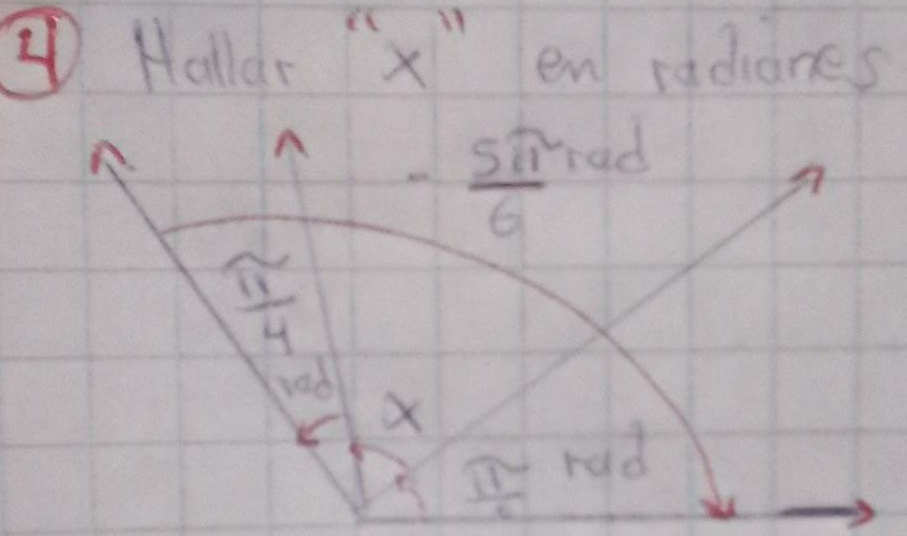 4 Hallar "x" en radianes
- 5π/6 rad
π/4 rad
x
π rad